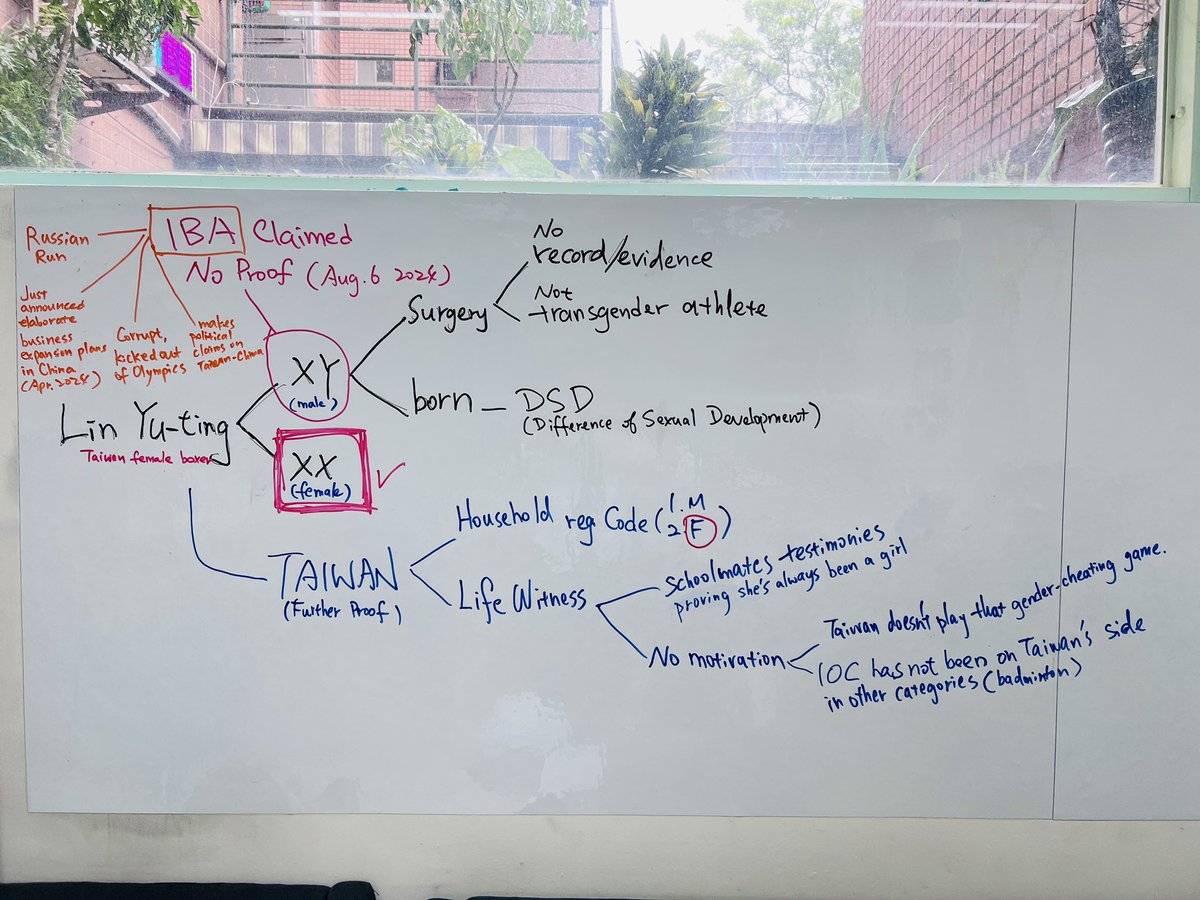 IBA Claimed
No Proof (Aug.6 2024)
Russian
Run
Just
announced
elaborate
business
expansion plans
in China
(Apr. 2024)
Corrupt,
kicked out
of Olympics
makes
political
claims on
Taiwan-China
Lin Yu-ting
Taiwan female boxer
XY
(male)
Surgery
No
record/evidence
Not
transgender athlete
born - DSD
(Difference of Sexual Development)
XX
(female)
TAIWAN
(Further Proof)
Household reg. Code (1. M
2. F)
Life Witness
schoolmates testimonies
proving she's always been a girl
No motivation
Taiwan doesn't play that gender-cheating game.
IOC has not been on Taiwan's side
in other categories (badminton)